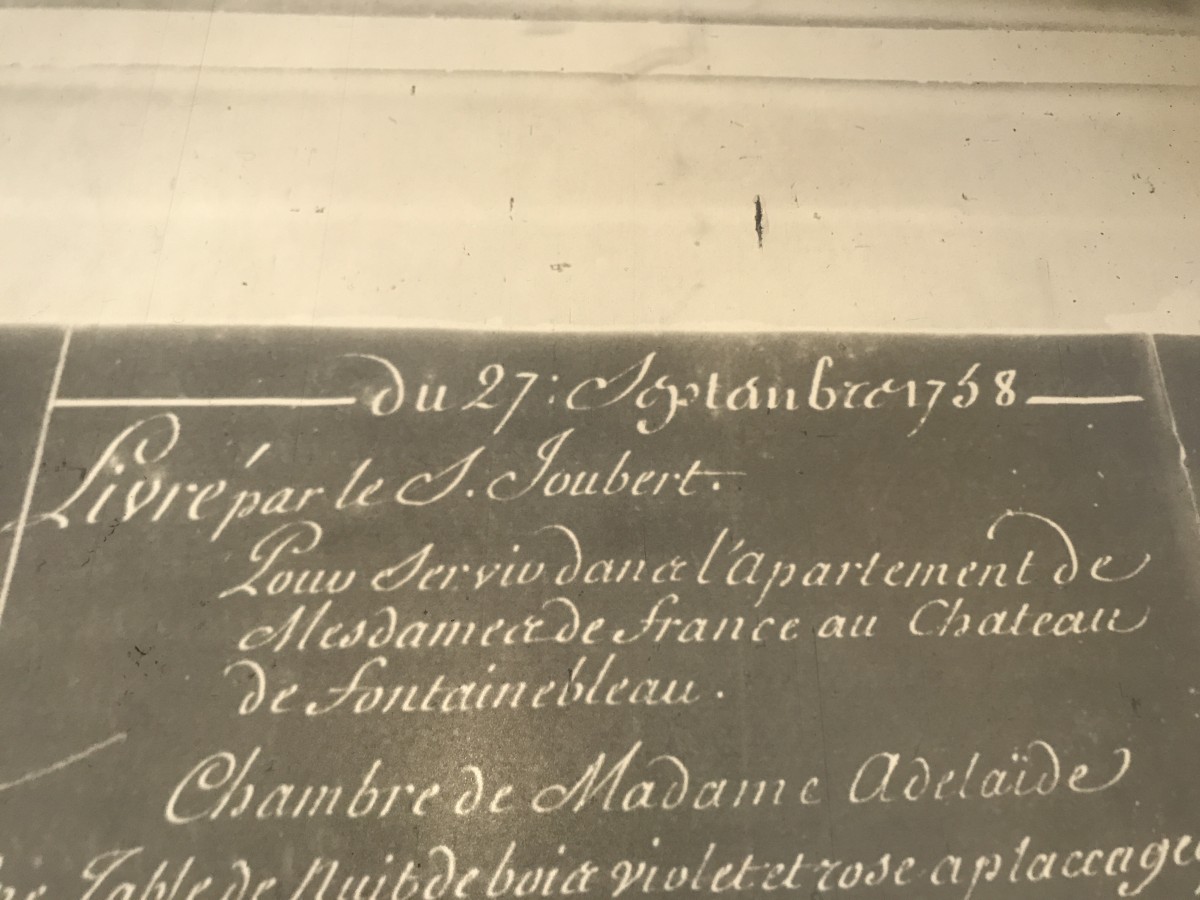 du 27: Septembre 1758
Livré par le S. Joubert.
Pour Servir dans l'apartement de
Mesdames de france au Chateau
de fontainebleau.
Chambre de Madame Adelaïde
Table de Nuit de bois violet et rose a placcages